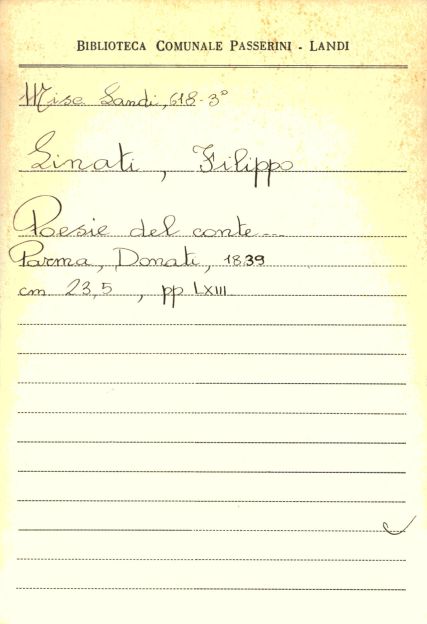 BIBLIOTECA COMUNALE PASSERINI - LANDI
Misc Landi, 618-3°
Linati, Filippo
Poesie del conte...
Parma, Donati, 1839
cm 23,5, pp LXIII